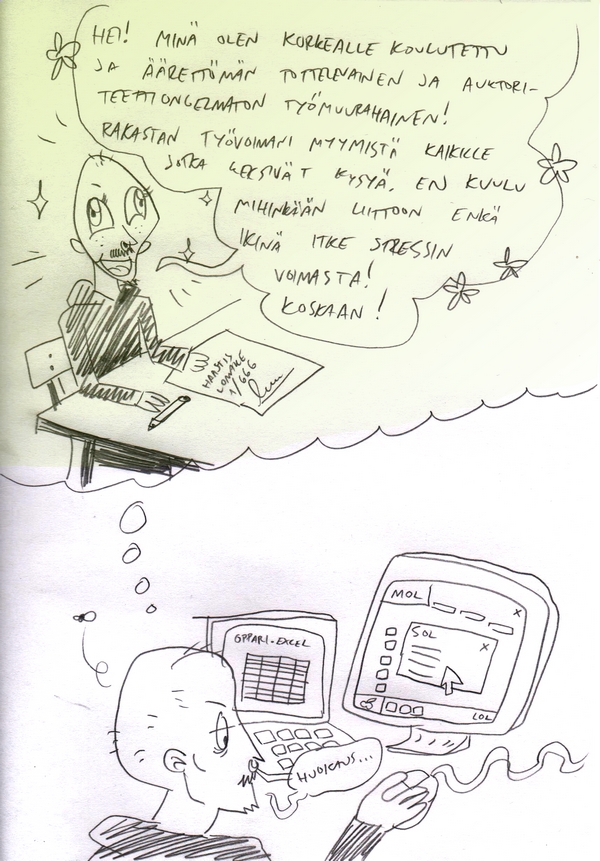 HEI! MINÄ OLEN KORKEALLE KOULUTETTU
JA ÄÄRETTÖMÄN TOTTELEVAINEN JA AUKTORI-
TEETTIONGELMATON TYÖMUURAHAINEN!
RAKASTAN TYÖVOIMANI MYYMISTÄ KAIKILLE
JOTKA KEKSIVÄT KYSYÄ, EN KUULU
MIHINKÄÄN LIITTOON ENKÄ
IKINÄ ITKE STRESSIN
VOIMASTA!
KOSKAAN!
LOMAKE
1/666
OPPARI-EXCEL
MOL
X
SOL
X
LOL
HUOKAUS...